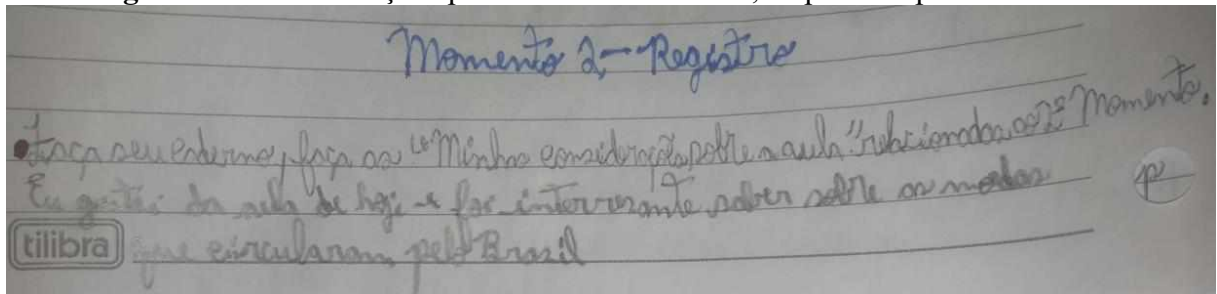 Momento 2 - Registro
• Faça seu enturno, faça as "Minhas considerações sobre a aula" relacionadas ao 2º Momento.
Eu gostei da aula de hoje e foi interresante saber sobre as moedas
tilibra que circularam pelo Brasil